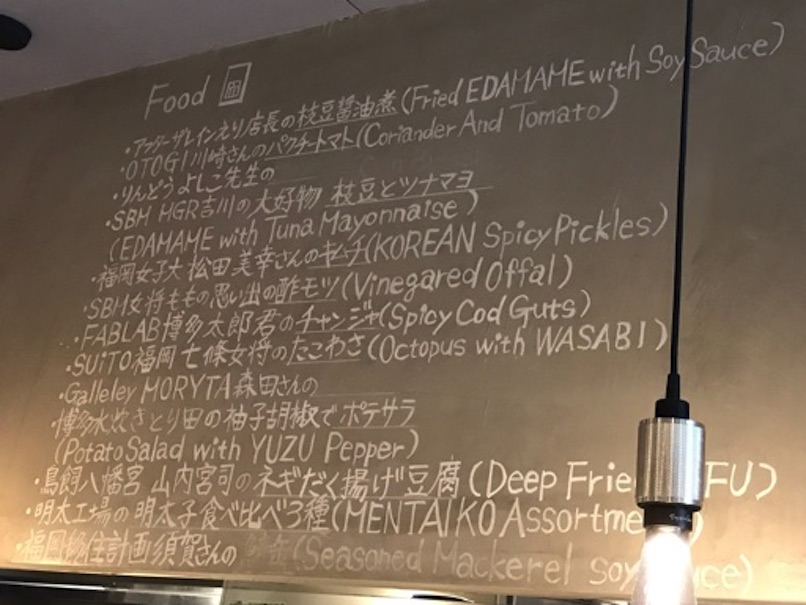 Food
・アフターザレインえり店長の枝豆醤油煮(Fried EDAMAME with Soy Sauce)
・OTOGI川崎さんのパクチートマト(Coriander And Tomato)
・りんどうよしこ先生の
・SBH HGR吉川の大好物 枝豆とツナマヨ
(EDAMAME with Tuna Mayonnaise)
・福岡女子大 松田美幸さんのキムチ(KOREAN Spicy Pickles)
・SBH女将ももの思い出の酢モツ(Vinegared Offal)
・FABLAB博多太郎君のチャンジャ(Spicy Cod Guts)
・SUiTO福岡 七條女将のたこわさ(Octopus with WASABI)
・Galleley MORYTA森田さんの
・博多水炊きとり田の柚子胡椒でポテサラ
(Potato Salad with YUZU Pepper)
・鳥飼八幡宮 山内宮司のネギだく揚げ豆腐(Deep Frie FU)
・明太工場の明太子食べ比べ3種(MENTAIKO Assortme)
・福岡 住計画須賀さんの (Seasoned Mackerel soy ce)